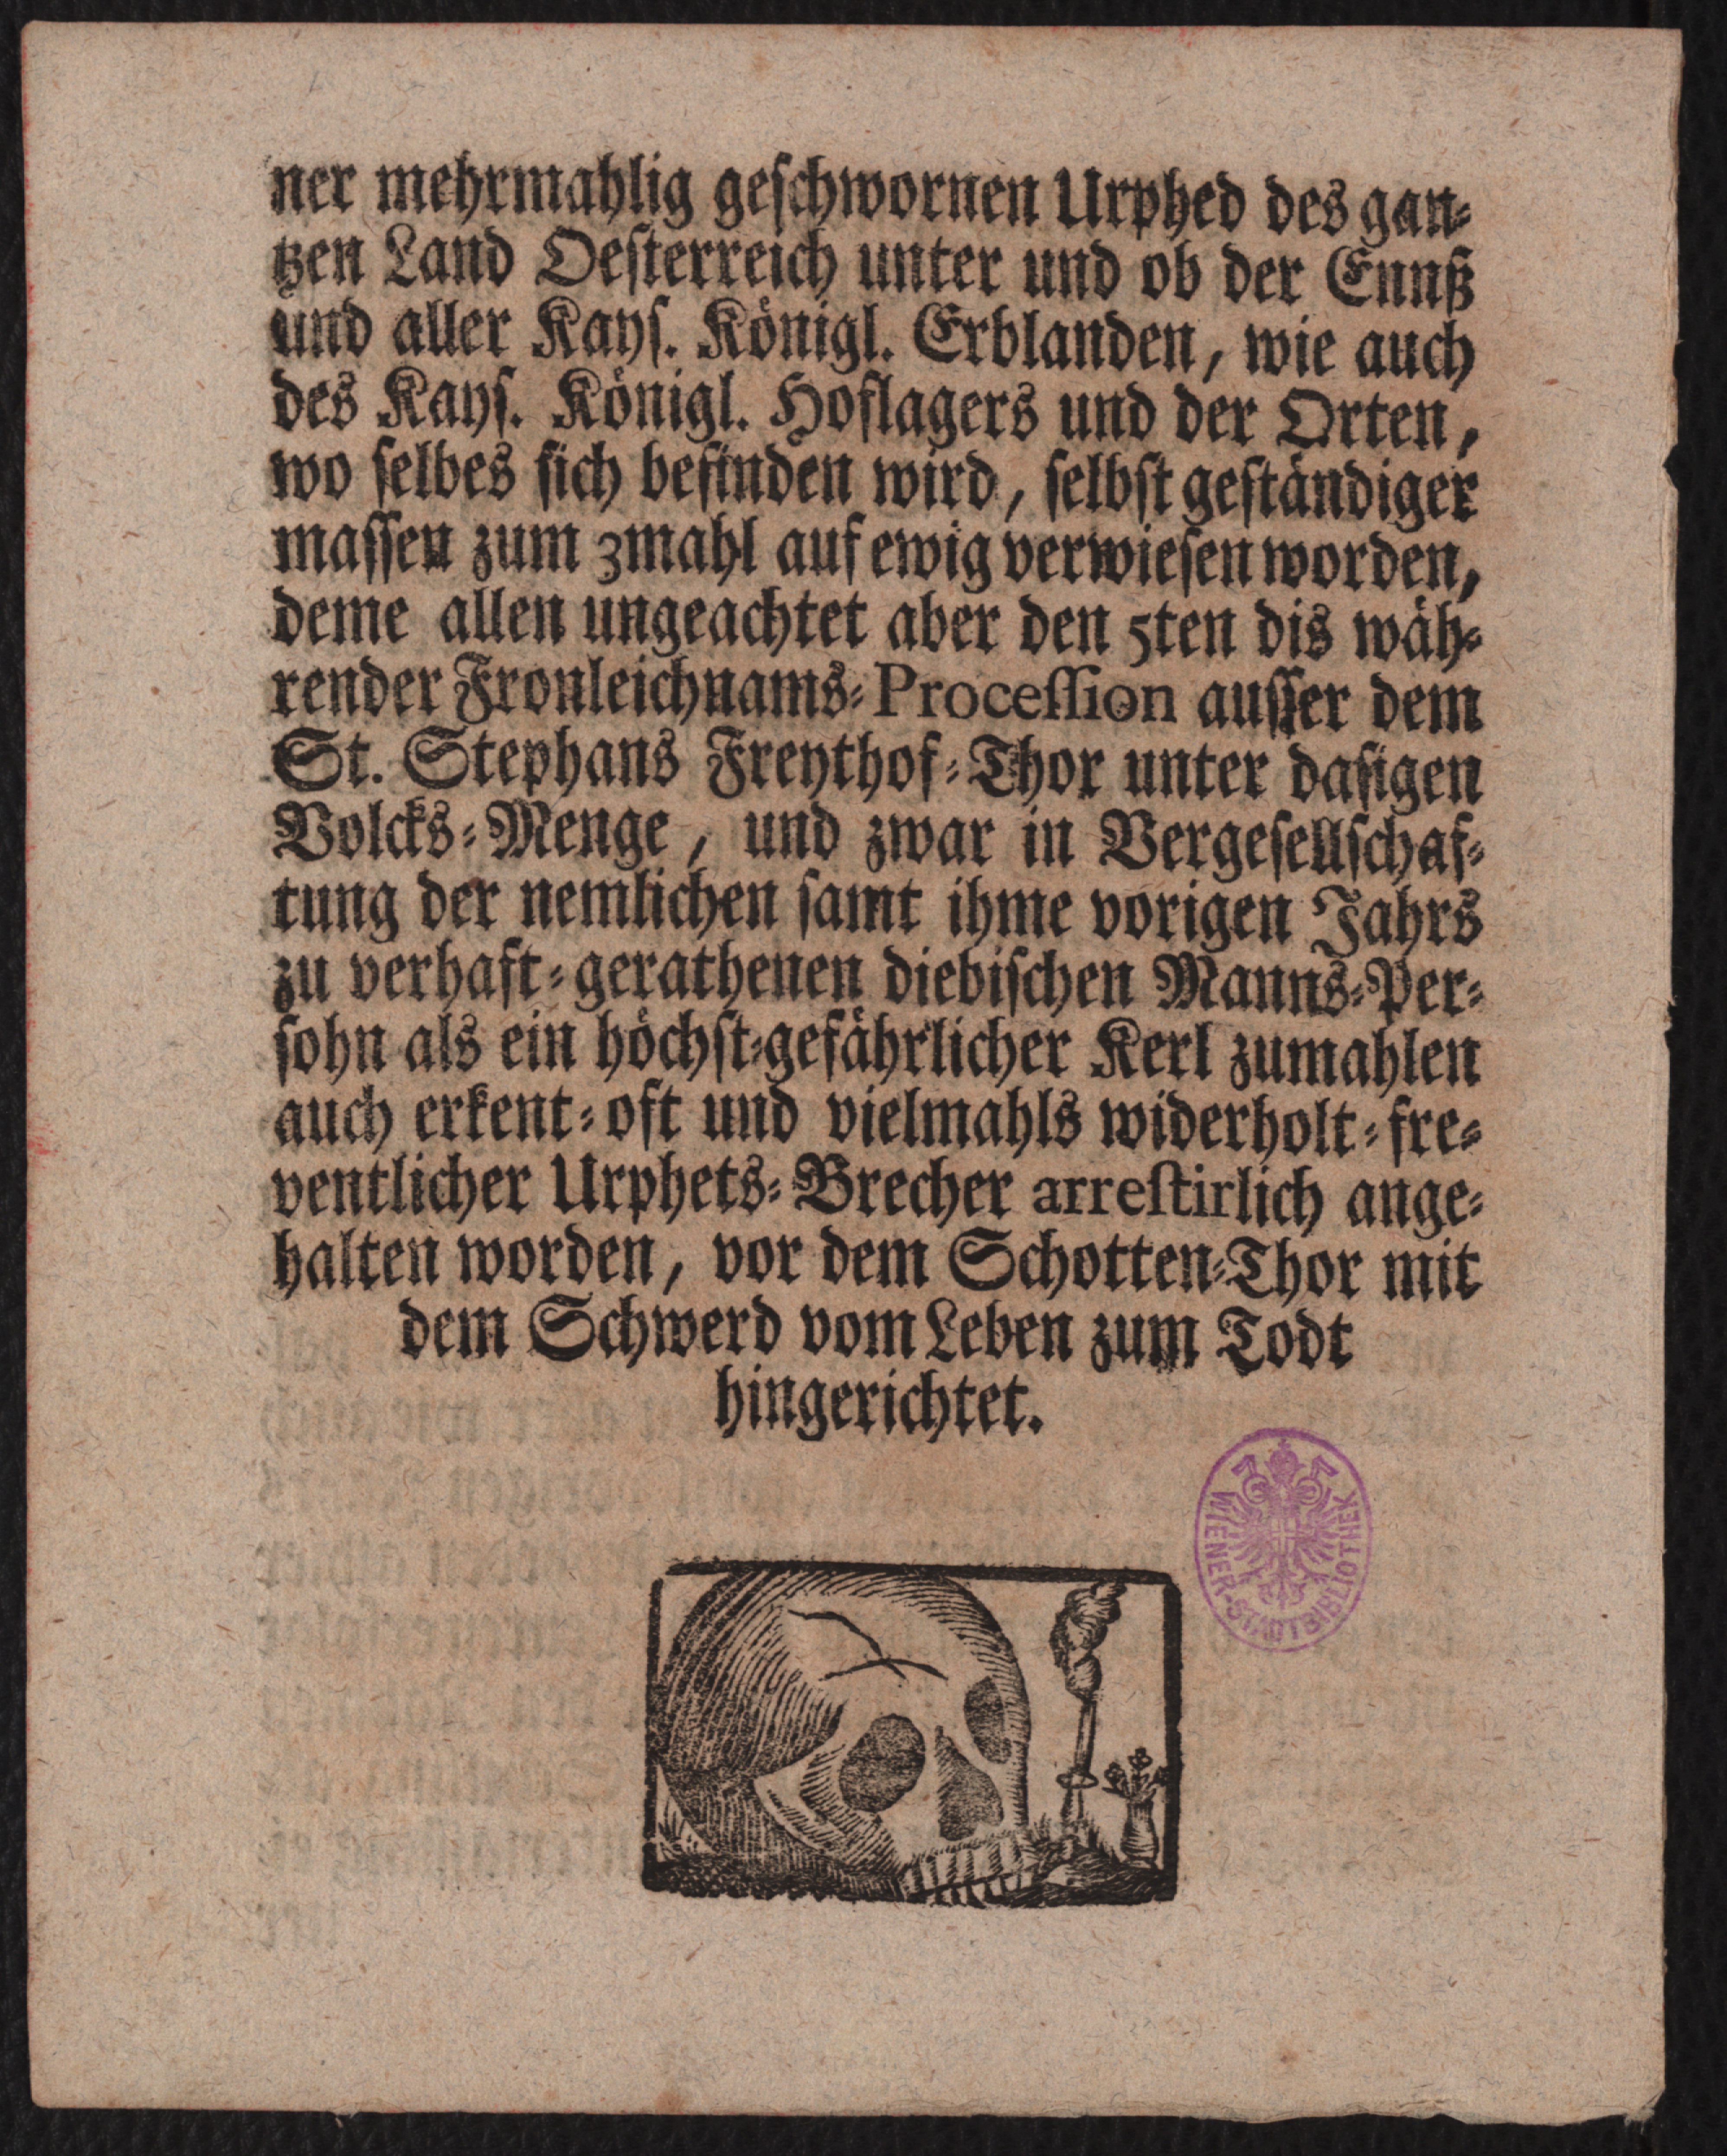 ner mehrmahlig geschwornen Urphed des gan-
tzen Land Oesterreich unter und ob der Ennß
und aller Kays. Königl. Erblanden, wie auch
des Kays. Königl. Hoflagers und der Orten,
wo selbes sich befinden wird, selbst geständiger
massen zum 3mahl auf ewig verwiesen worden,
deme allen ungeachtet aber den 5ten dis wäh-
render Fronleichnams-Procession ausser dem
St. Stephans Freythof-Thor unter dasigen
Volcks-Menge, und zwar in Vergesellschaf-
tung der nemlichen samt ihme vorigen Jahrs
zu verhaft-gerathenen diebischen Manns-Per-
sohn als ein höchst-gefährlicher Kerl zumahlen
auch erkent-oft und vielmahls widerholt-fre-
ventlicher Urphets-Brecher arrestirlich ange-
halten worden, vor dem Schotten-Thor mit
dem Schwerd vom Leben zum Todt
hingerichtet.
WIENER-STADTBIBLIOTHEK